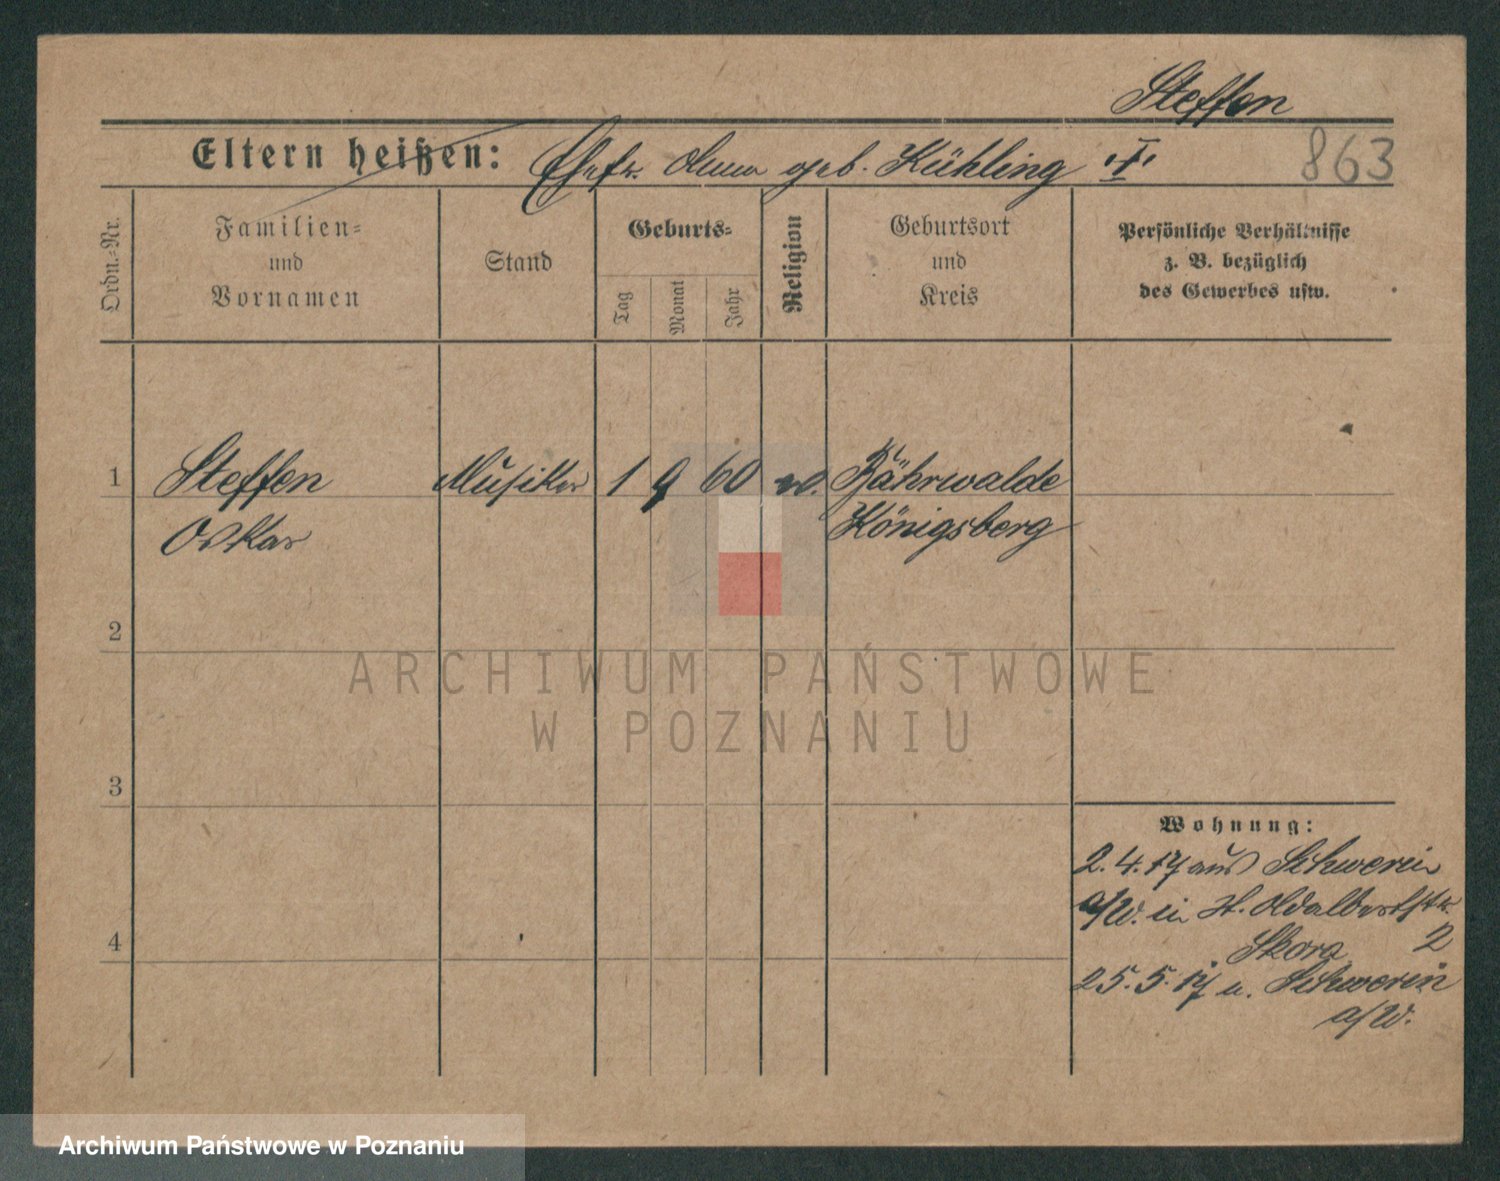 Steffen
Eltern heißen: Ehefr. Anna geb. Kühling I.
863
Ordn.-Nr.
Familien-
und
Vornamen
Stand
Geburts-
Tag
Monat
Jahr
Religion
Geburtsort
und
Kreis
Persönliche Verhältnisse
z. B. bezüglich
des Gewerbes usw.
1 Steffen Musiker 1 9 60 Bährwalde
Oskar Königsberg
2
ARCHIWUM PAŃSTWOWE
W POZNANIU
3
Wohnung:
2.4.17 aus Schwerin
a/W. in St. Adalbertstr.
Skora 2
4
25.5.17 n. Schwerin
a/W.
Archiwum Państwowe w Poznaniu